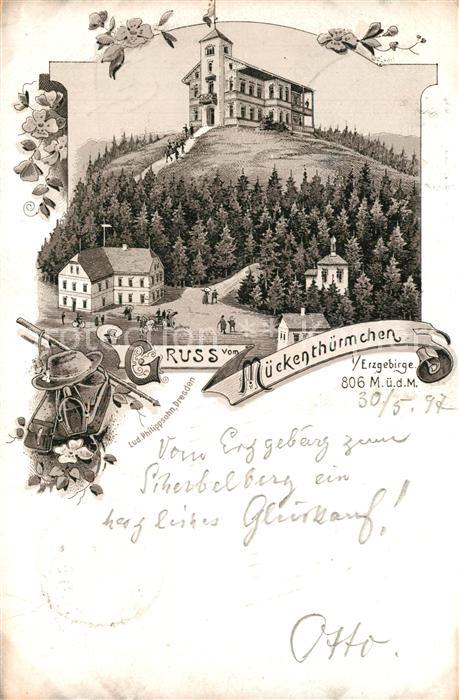 GRUSS vom Mückenthürmchen
i/Erzgebirge.
806 M.ü.d.M.
Lud. Philippsohn, Dresden
30/5. 97
Vom Erzgebürg zum
Scherbelberg ein
herzliches Glückauf!
Otto.